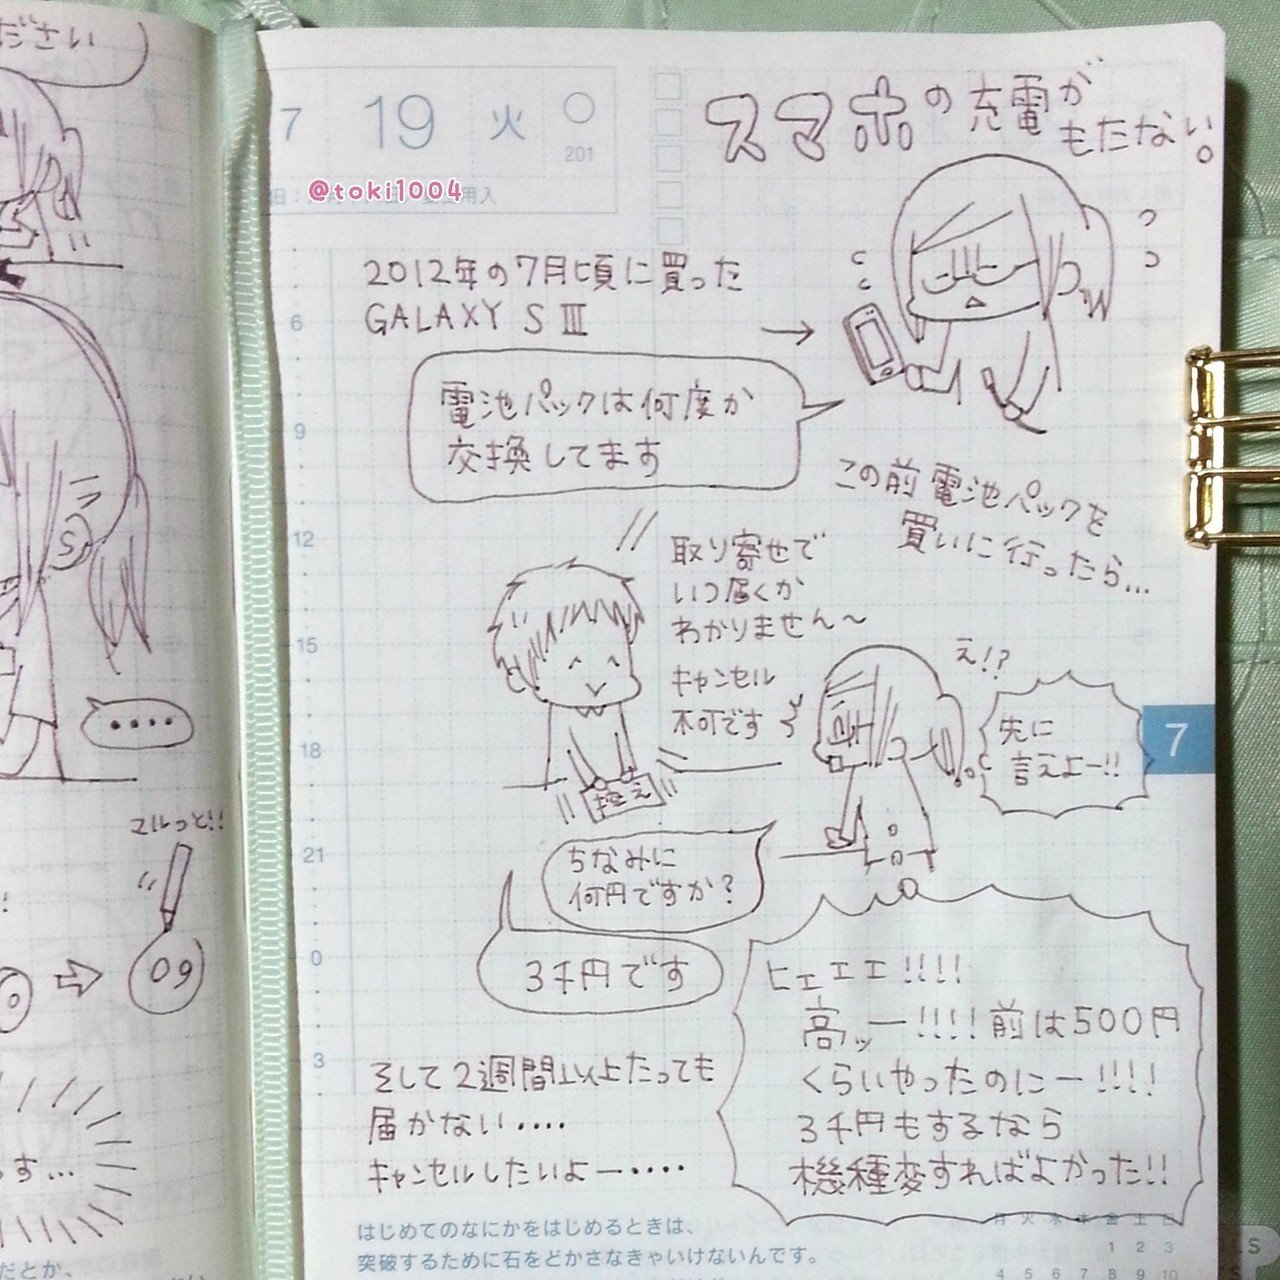 ださい
7 19 火
201
@toki1004
用入
スマホの充電が
もたない。
2012年の7月頃に買った
GALAXY SⅢ
→
電池パックは何度か
交換してます
この前電池パックを
買いに行ったら...
取り寄せで
いつ届くか
わかりません〜
キャンセル
不可です
控え
え!?
先に
言えよー!!
ちなみに
何円ですか?
3千円です
ヒェエエ!!!!
高ッー!!!!前は500円
くらいやったのにー!!!!
3千円もするなら
機種変すればよかった!!
そして2週間以上たっても
届かない‥‥
キャンセルしたいよー‥‥
6
9
12
15
18
21
0
3
7
はじめてのなにかをはじめるときは、
突破するために石をどかさなきゃいけないんです。
月 火 水 木 金 土 日
1 2 3
4 5 6 7 8 9 10
‥‥
マルっと!!
09
す...
だとか、